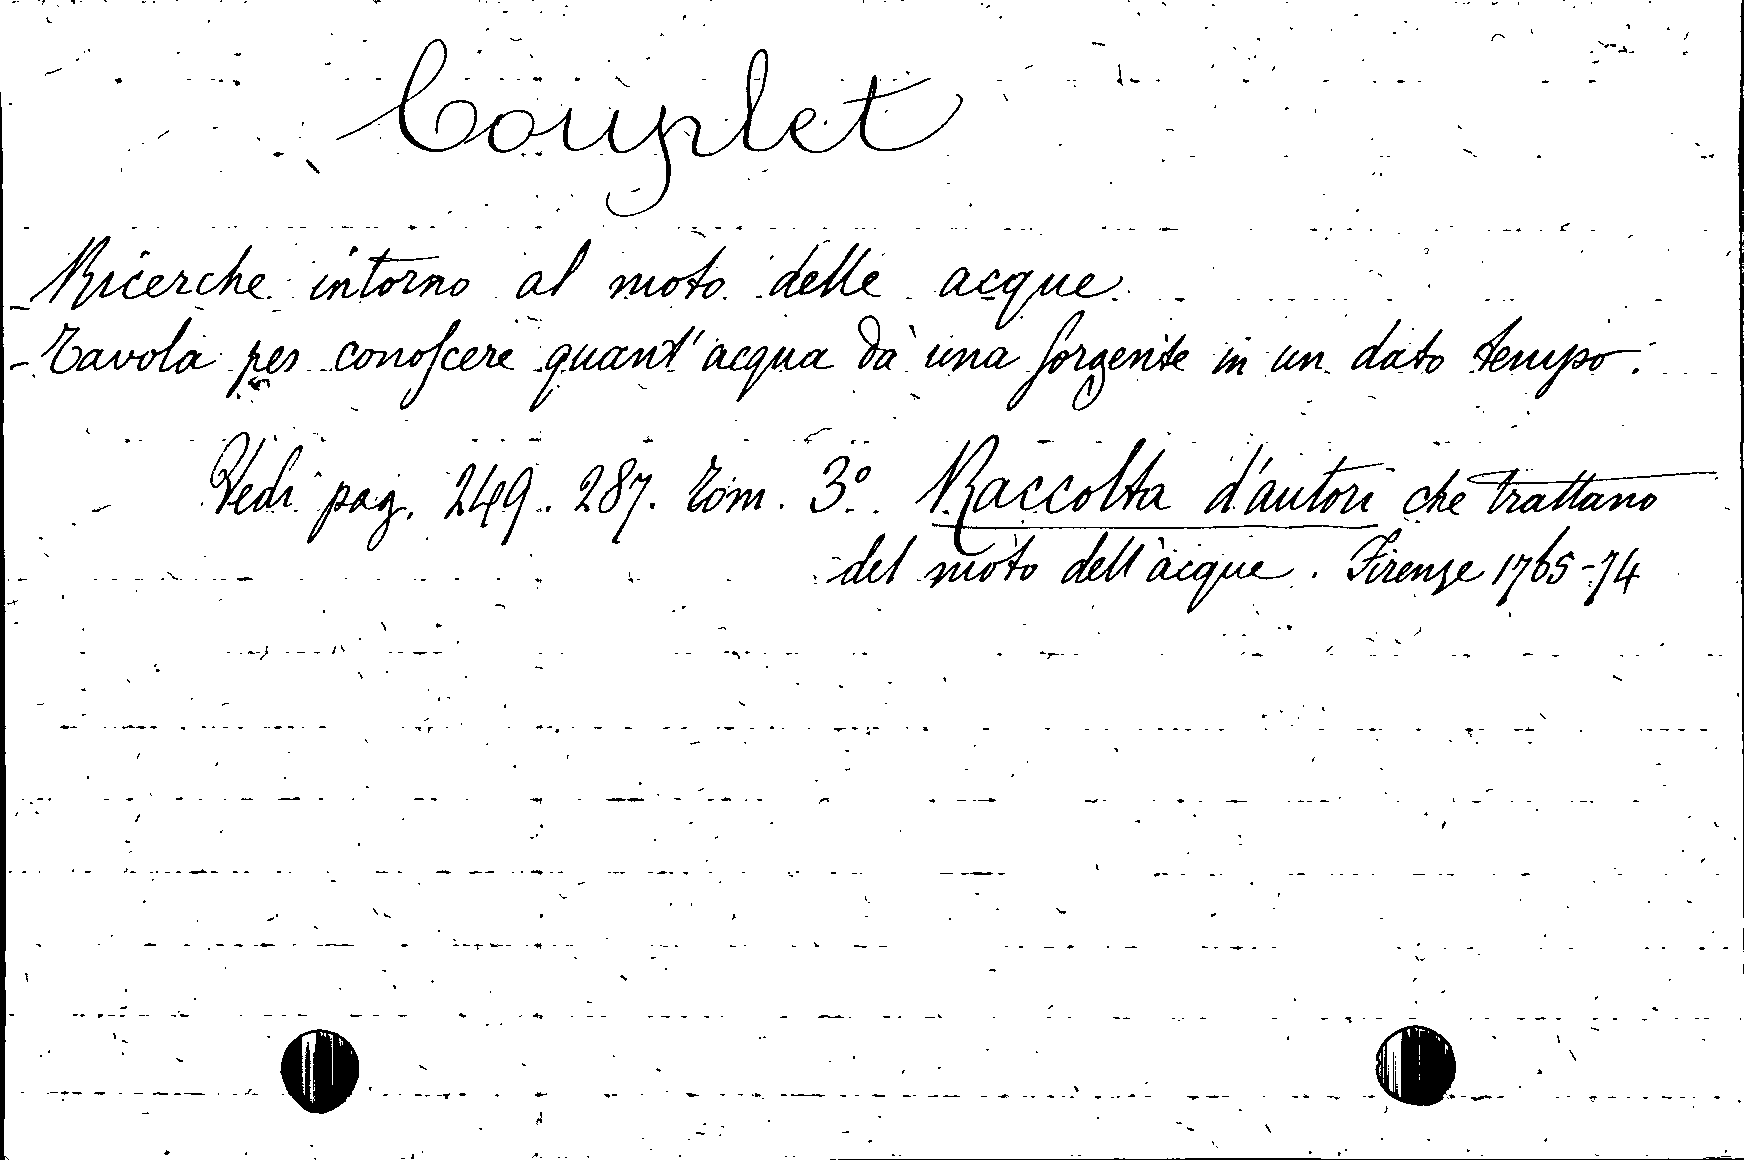 Couplet
- Ricerche intorno al moto delle acque.
- Tavola per conoscere quant'acqua dà una sorgente in un dato tempo.
Vedi pag. 249. 287. Tom. 3.º Raccolta d'autori che trattano
del moto dell'acque. Firenze 1765-74